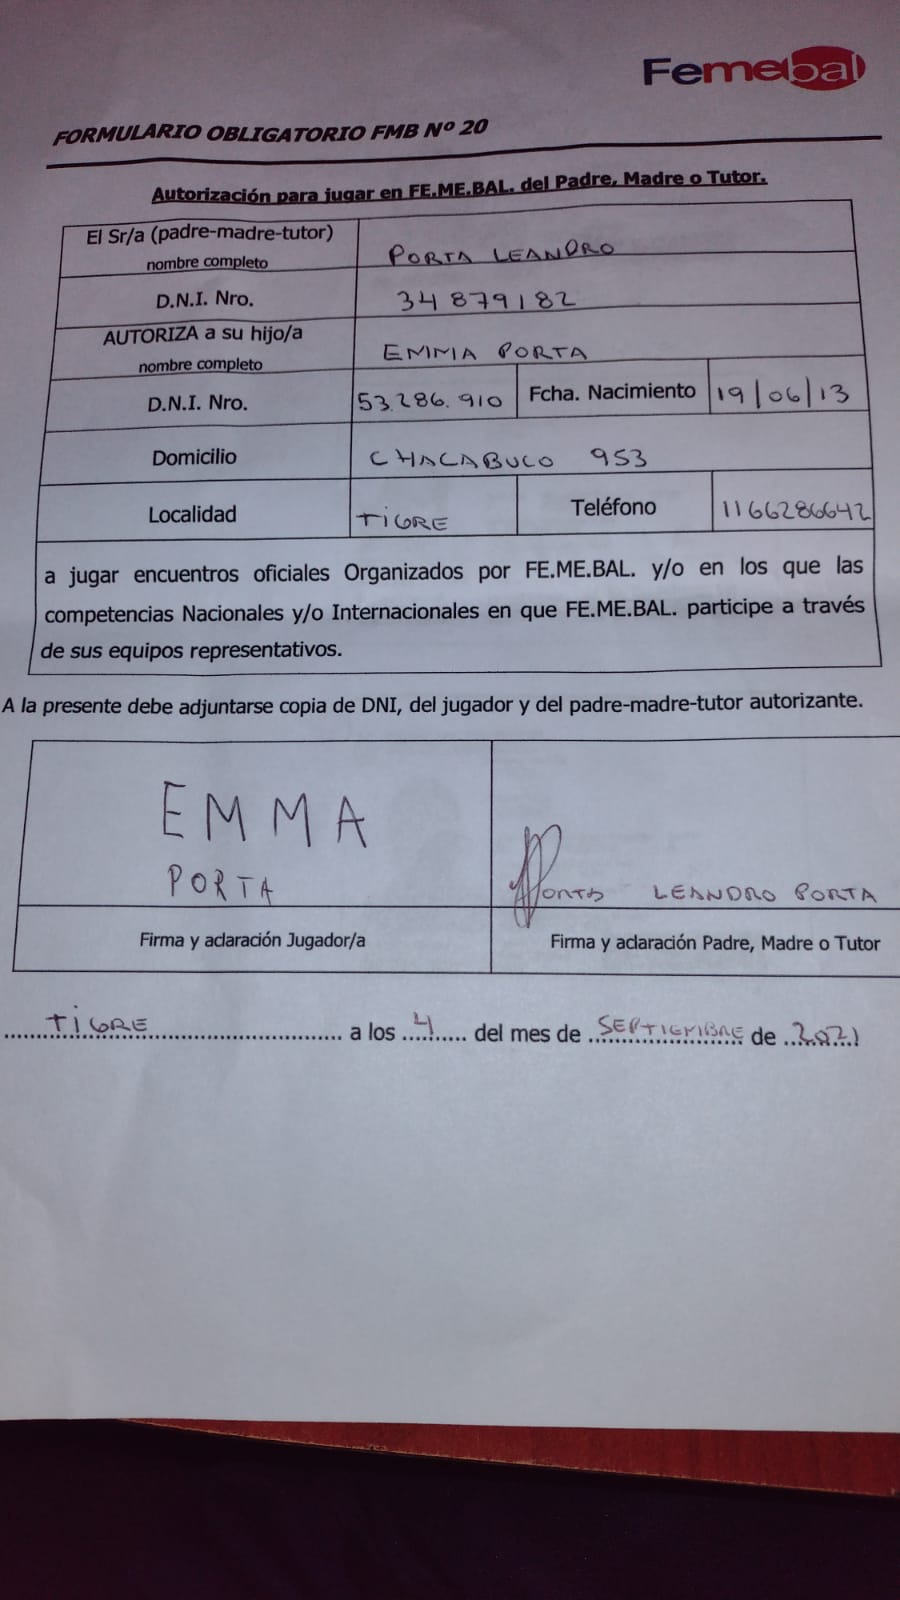 Femebal
FORMULARIO OBLIGATORIO FMB Nº 20
Autorización para jugar en FE.ME.BAL. del Padre, Madre o Tutor.
El Sr/a (padre-madre-tutor)
nombre completo
PORTA LEANDRO
D.N.I. Nro.
34879182
AUTORIZA a su hijo/a
nombre completo
EMMA PORTA
D.N.I. Nro.
53.286.910
Fcha. Nacimiento
19/06/13
Domicilio
CHACABUCO 953
Localidad
TIGRE
Teléfono
1166286642
a jugar encuentros oficiales Organizados por FE.ME.BAL. y/o en los que las
competencias Nacionales y/o Internacionales en que FE.ME.BAL. participe a través
de sus equipos representativos.
A la presente debe adjuntarse copia de DNI, del jugador y del padre-madre-tutor autorizante.
EMMA
PORTA
Porta LEANDRO PORTA
Firma y aclaración Jugador/a
Firma y aclaración Padre, Madre o Tutor
TIGRE a los 4 del mes de SEPTIEMBRE de 2021